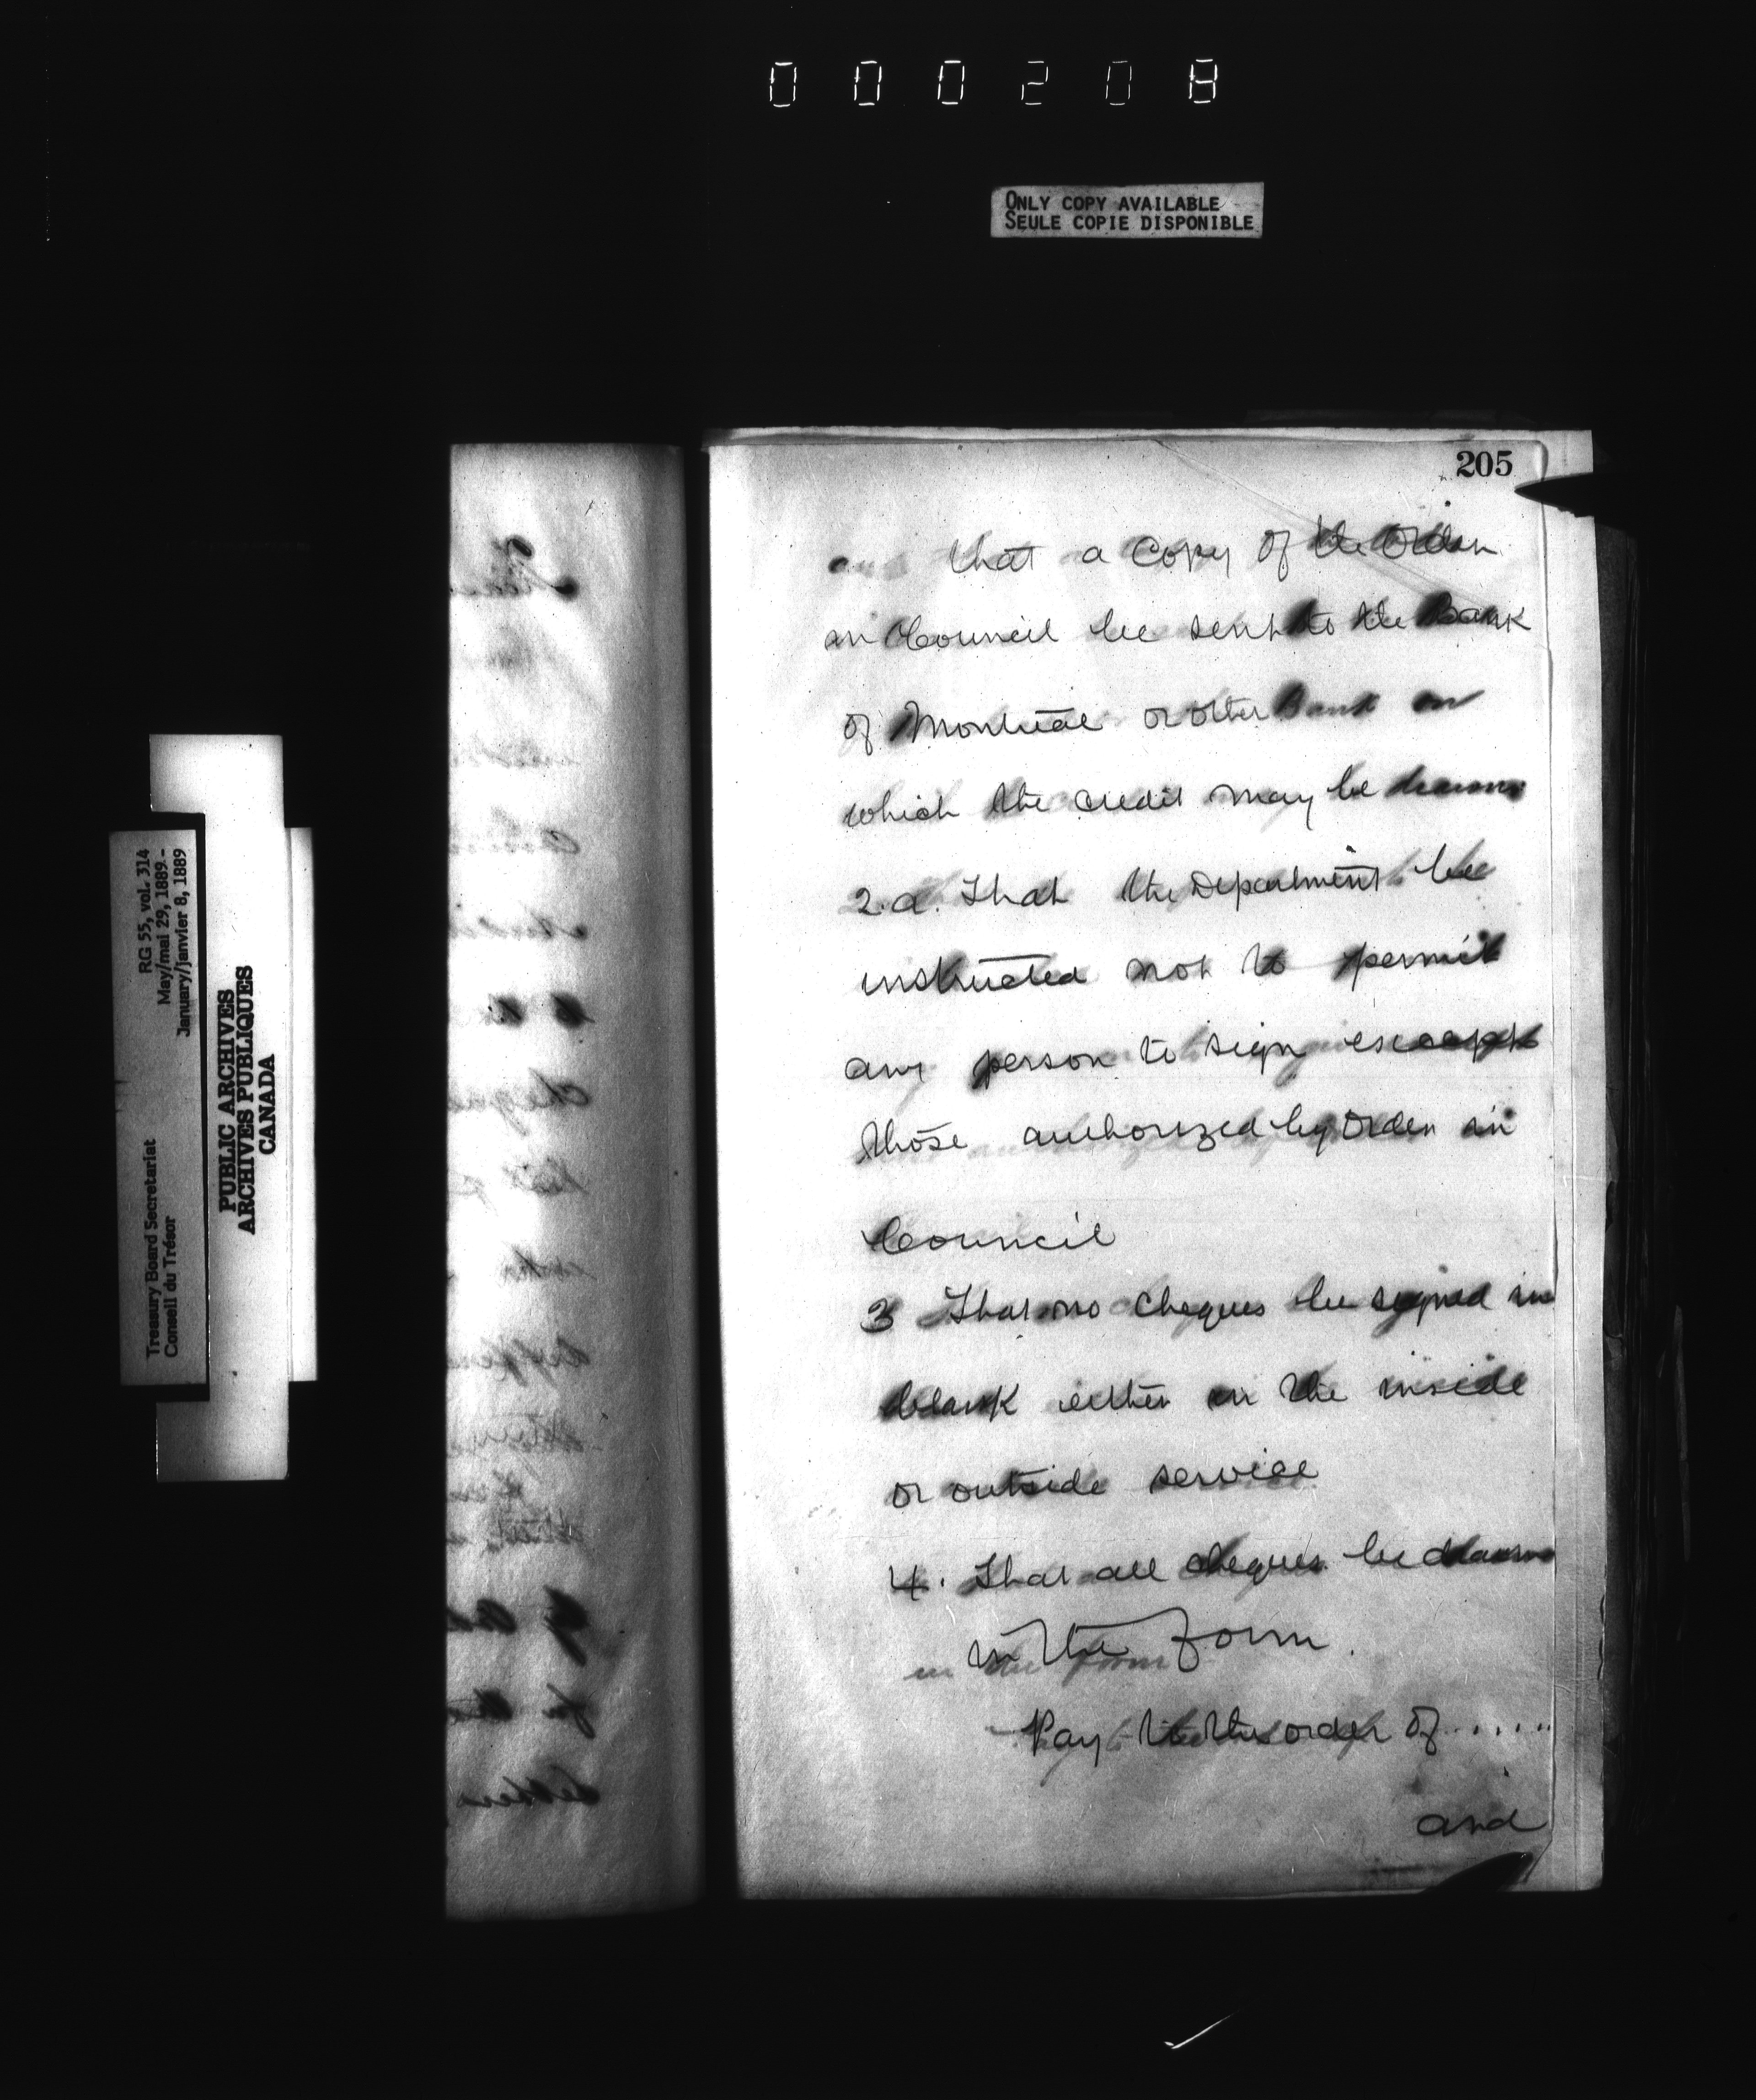 000208
ONLY COPY AVAILABLE
SEULE COPIE DISPONIBLE
205
and that a Copy of the Order
in Council be sent to the Bank
of Montreal or other Bank on
which the credit may be drawn
2.a. That the Department be
instructed not to permit
any person to sign except
those authorized by Order in
Council
3 That no Cheques be signed in
blank either in the inside
or outside service
4. That all cheques be drawn
in the form
in the form.
Pay to the order of......
and
RG 55, vol. 314
May/mai 29, 1889 -
January/janvier 8, 1889
Treasury Board Secretariat
Conseil du Trésor
PUBLIC ARCHIVES
ARCHIVES PUBLIQUES
CANADA